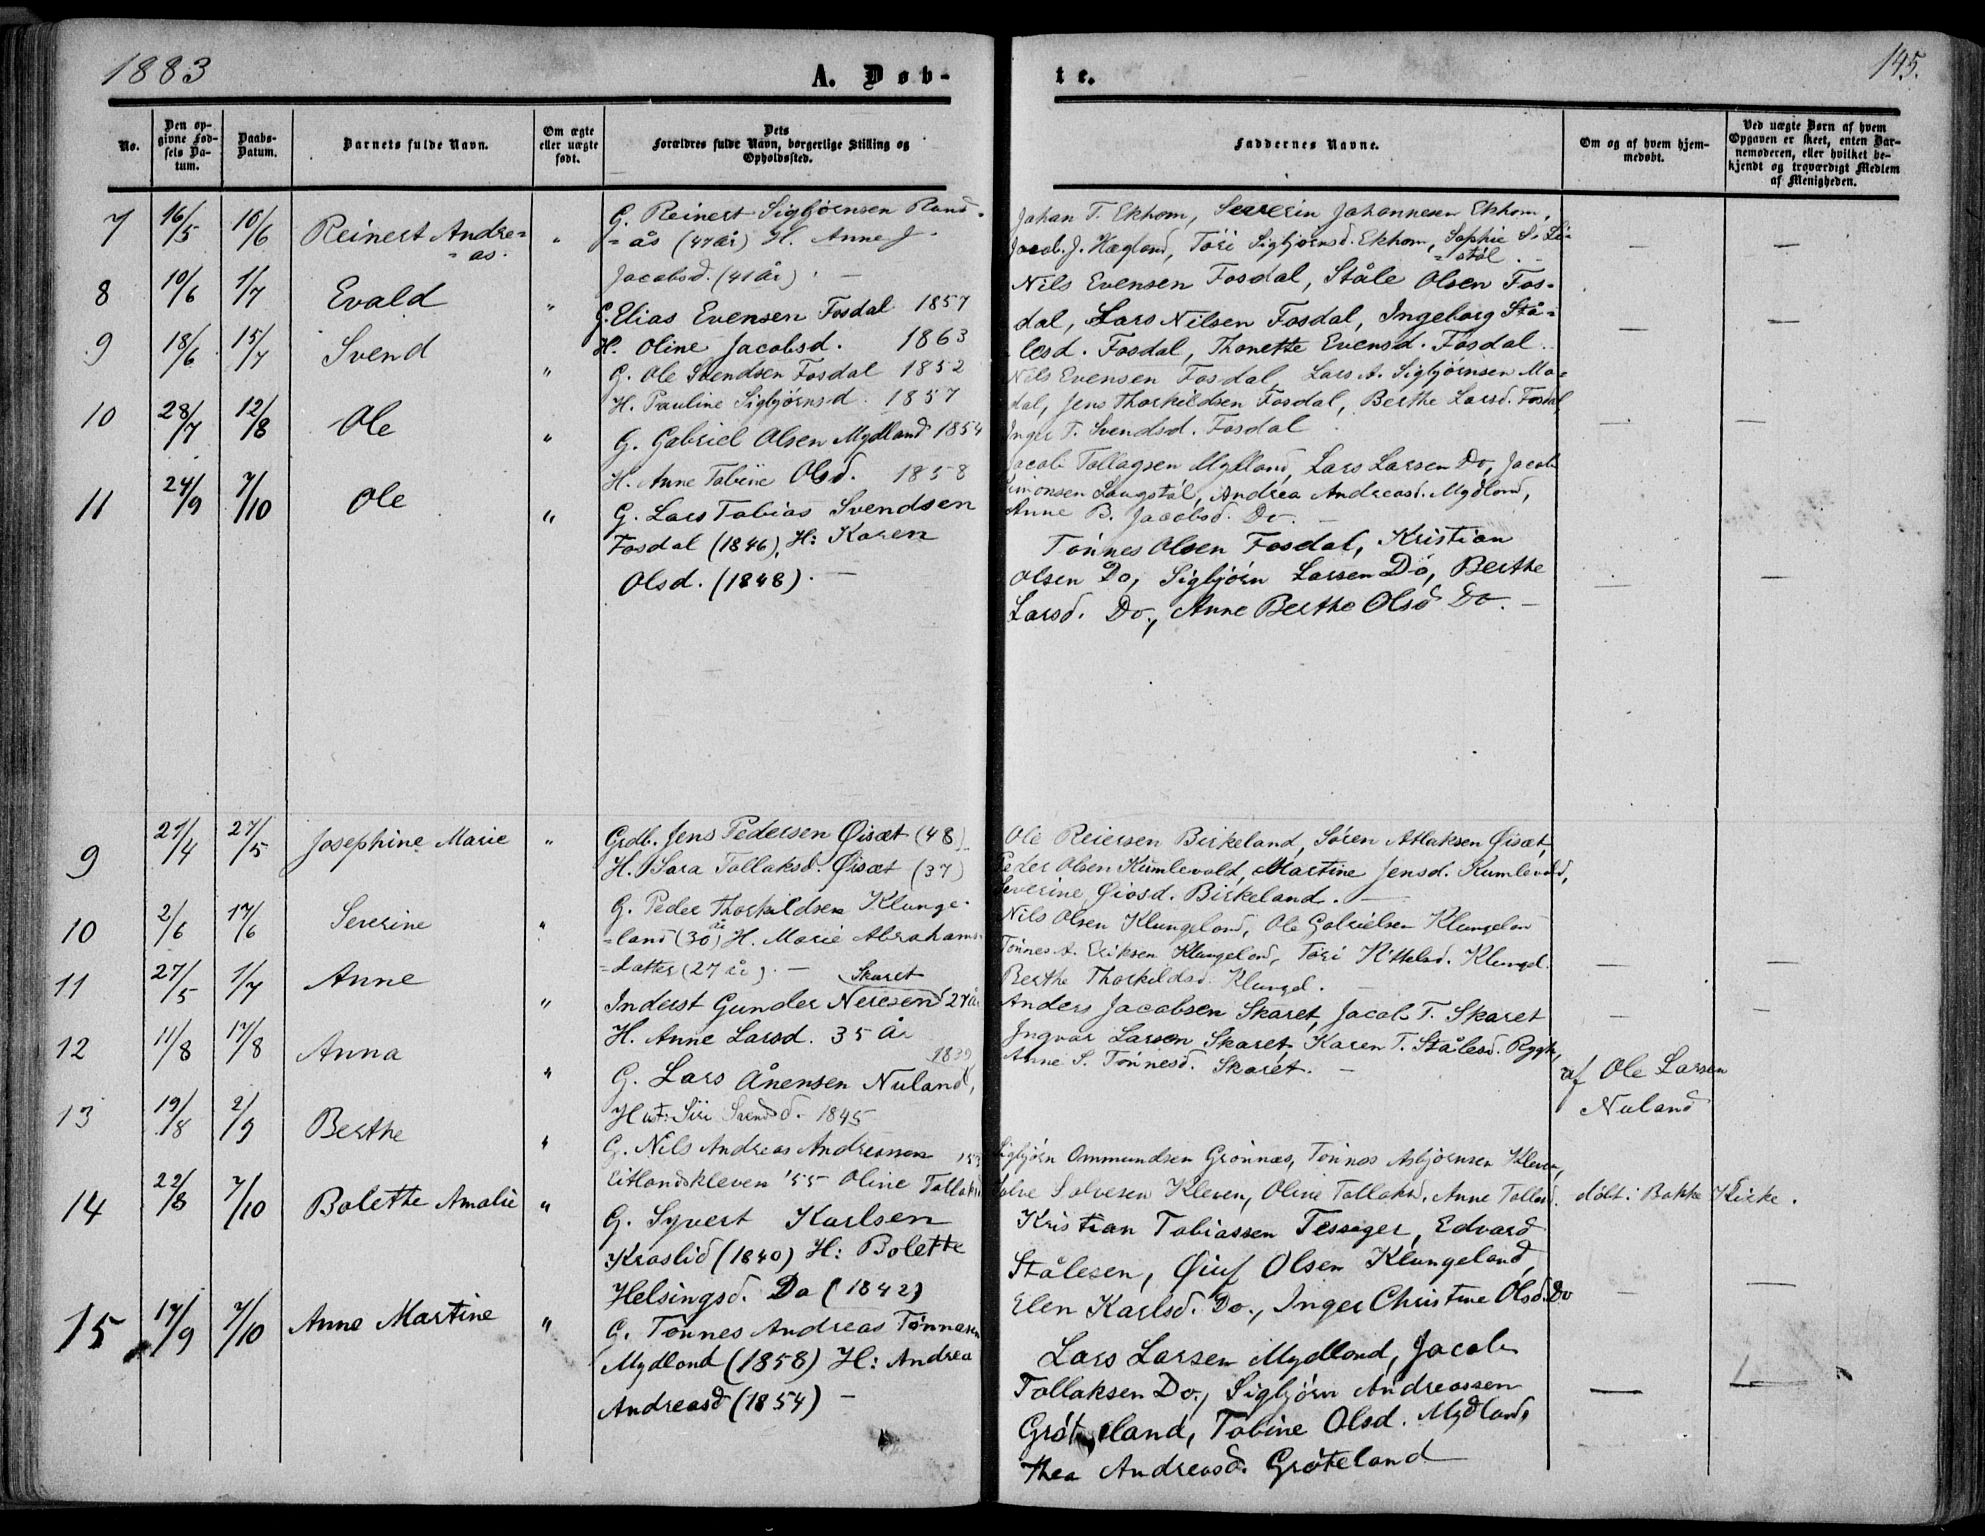 1883
A. Døb-
te.
145.
No.
Den op-
givne Fød-
sels Da-
tum.
Daabs-
Datum.
Barnets fulde Navn.
Om ægte
eller uægte
født.
Dets
Forældres fulde Navn, borgerlige Stilling og
Opholdssted.
Faddernes Navne.
Om og af hvem hjem-
medøbt.
Ved uægte Børn af hvem
Opgaven er skeet, enten Bar-
nemoderen, eller hvilket be-
kjendt og troværdigt Medlem
af Menigheden.
7 16/5 10/6 Reinert Andre=
=as.
"
G. Reinert Sigbjørnsen Rand=
=ås (47 år) H. Anne J.
Jacobsd. (41 år). —
Johan T. Ekhom, Severin Johannesen Ekhom,
Jacob J. Hægland, Tøri Sigbjørnsd. Ekhom, Sophie S.
— —
8 10/6 1/7 Evald "
G. Elias Evensen Fosdal 1857
H. Oline Jacobsd. 1863
Nils Evensen Fosdal, Ståle Olsen Fos-
dal, Lars Nilsen Fosdal, Ingeborg Stå=
lesd. Fosdal, Thonette Evensd. Fosdal.
— —
9 18/6 15/7 Svend "
G. Ole Svendsen Fosdal 1852
H. Pauline Sigbjørnsd. 1857
Nils Evensen Fosdal, Lars A. Sigbjørnsen Mo-
dal, Jens Thorkildsen Fosdal, Berthe Larsd. Fosdal
Inger T. Svendsd. Fosdal
— —
10 28/7 12/8 Ole "
G. Gabriel Olsen Mydland 1854
H. Anne Tobine Olsd. 1858
Jacob Tollagsen Mydland, Lars Larsen Do, Jacob
Simonsen Laugstøl, Andrea Andreasd. Mydland,
Anne B. Jacobsd. Do. —
11 24/9 7/10 Ole "
G. Lars Tobias Svendsen
Fosdal (1846), H: Karen
Olsd. (1848). —
Tønnes Olsen Fosdal, Kristian
Olsen Do, Sigbjørn Larsen Do, Berthe
Larsd. Do., Anne Berthe Olsd Do. —
— —
9 27/4 27/5 Josephine Marie "
Grdb. Jens Pedersen Øisæt (48)
H. Sara Tollaksd. Øisæt (37)
Ole Reiersen Birkeland, Søren Atlaksen Øisæt,
Peder Olsen Kumlevold, Martine Jensd. Kumlevold,
Severine Øiosd. Birkeland. —
10 2/6 17/6 Severine "
G. Peder Thorkildsen Klunge-
=land (30 år) H. Marie Abrahams=
=datter (27 år). —
Nils Olsen Klungeland, Ole Gabrielsen Klungelan
Tønnes A. Eriksen Klungeland, Tøri Kittelsd. Klungel.
Berthe Thorkildsd. Klungel. —
— —
11 27/5 1/7 Anne "
Skaret
Inderst Gunder Neresen 27 år
H. Anne Larsd. 35 år
Anders Jacobsen Skaret, Jacob T. Skaret
Ingvar Larsen Skaret, Karen T. Stålesd.
Anne S. Tønnesd. Skaret. —
— —
12 11/8 17/8 Anna "
1839
G. Lars Ånensen Nuland,
Hust: Siri Svendsd. 1845
af Ole Larsen
Nuland
13 19/8 2/9 Berthe "
G. Nils Andreas Andreassen
Eitlandskleven '55 Oline Tollaksd
Sigbjørn Ommundsen Grønnæs, Tønnes Asbjørnsen Kleven,
Salve Salvesen Kleven, Oline Tollaksd, Anne Tollaksd.
døbt i Bakke Kirke.
14 22/8 7/10 Bolette Amalie "
G. Syvert Karlsen
Kraslid (1840) H: Bolette
Helsingsd. Do (1842)
Kristian Tobiassen Tessåger, Edvard
Stålesen, Øiuf Olsen Klungeland,
Elen Karlsd. Do., Inger Christine Olsd. Do
— —
15 17/9 7/10 Anne Martine "
G. Tønnes Andreas Tønnesen
Mydland (1858) H: Andrea
Andreasd (1854) —
Lars Larsen Mydland, Jacob
Tollaksen Do., Sigbjørn Andreassen
Grøteland, Tobine Olsd. Mydland,
Thea Andreasd. Grøteland
— —